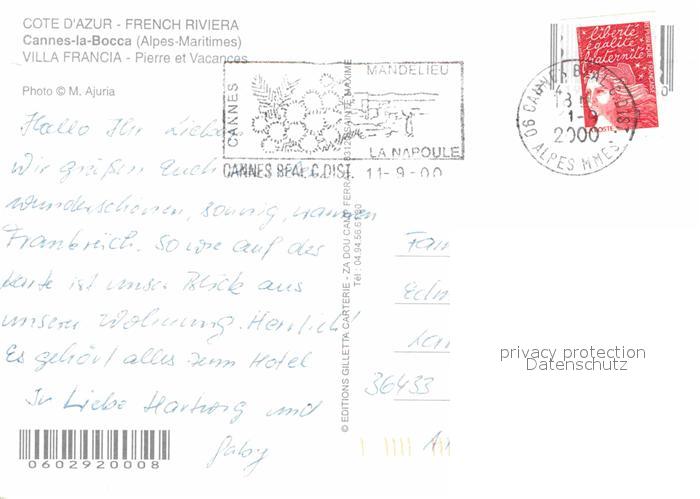 COTE D'AZUR - FRENCH RIVIERA
Cannes-la-Bocca (Alpes-Maritimes)
VILLA FRANCIA - Pierre et Vacances
Photo © M. Ajuria
CANNES
MANDELIEU
LA NAPOULE
CANNES BFAL C.DIST. 11-9-00
06 CANNES BFAL C.DIST
2000
ALPES MMES
liberté
égalité
fraternité
POSTE
Hallo Ihr Lieben
Wir grüßen Euch
wunderschönen, sonnig, warmen
Frankreich. So wie auf der
Karte ist unser Blick aus
unserer Wohnung. Herrlich!
Es gehört alles zum Hotel
In Liebe Hartwig und
Gaby
© EDITIONS GILLETTA CARTERIE - ZA DOU CAMP FERRA - 83120 SAINTE MAXIME
Tél : 04.94.56.6
Fam
Edm
36433
privacy protection
Datenschutz
0602920008